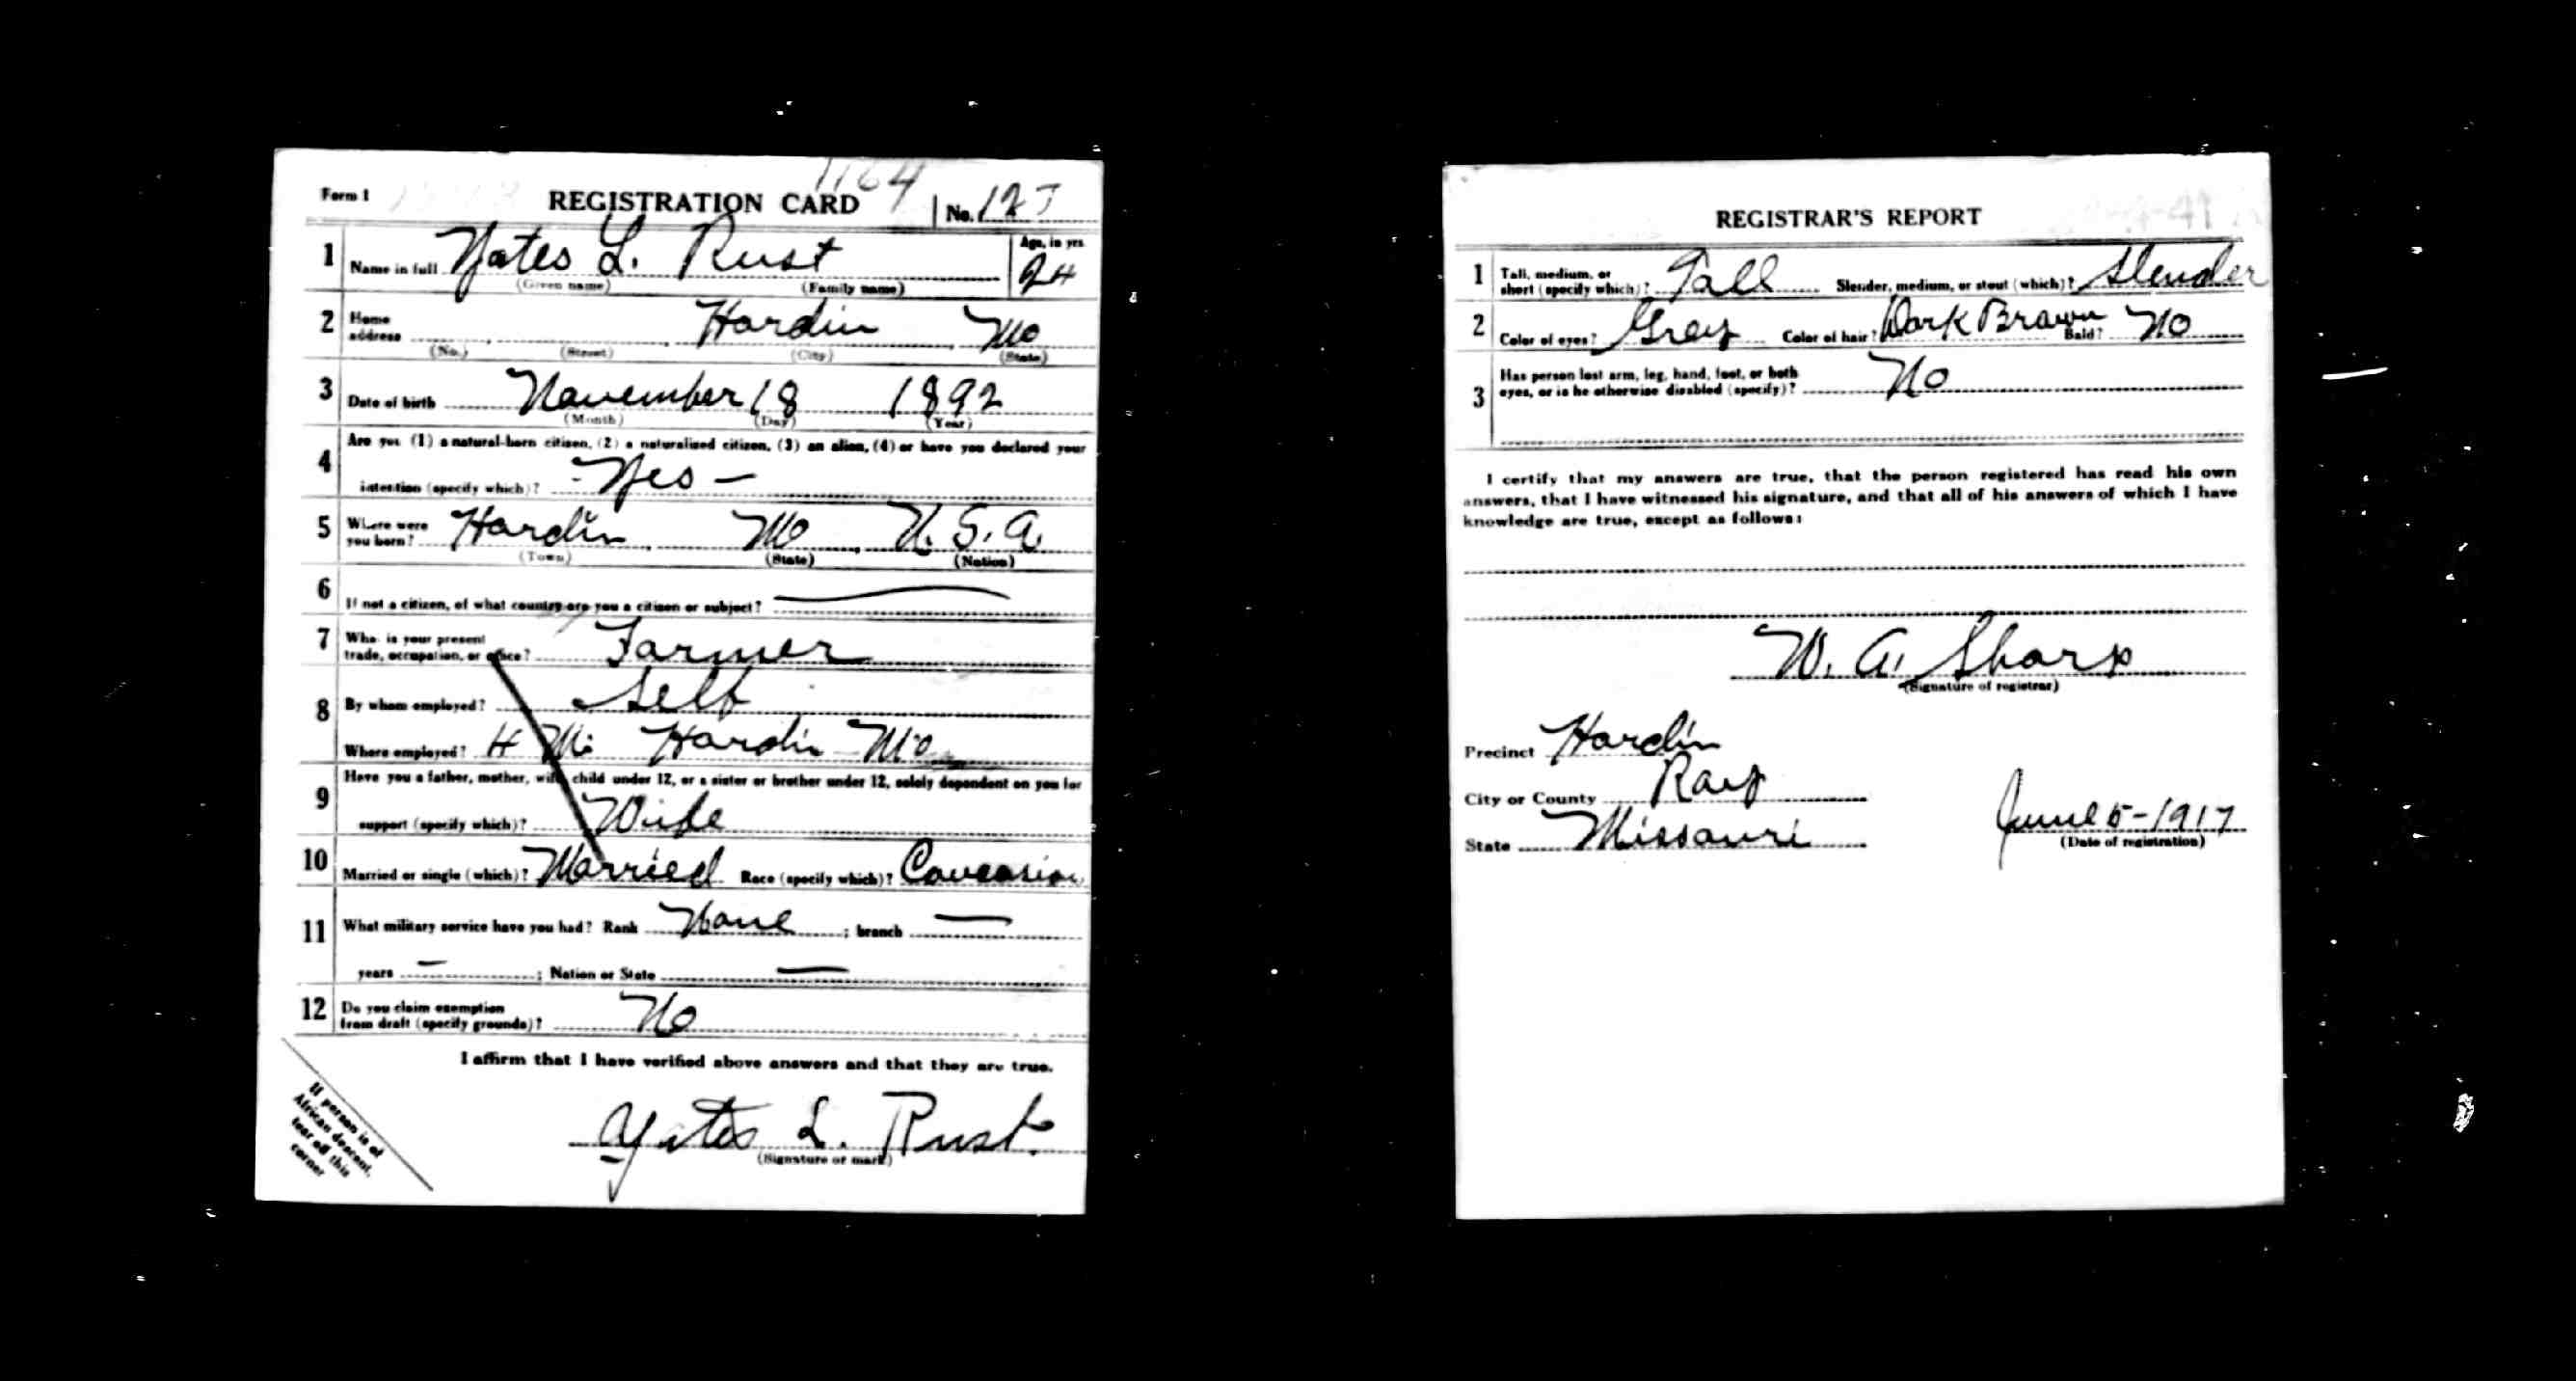 1164
Form 1 REGISTRATION CARD No. 127
1 Name in full Yates L. Rust Age, in yrs. 24
(Given name) (Family name)
2 Home address Hardin Mo
(No.) (Street) (City) (State)
3 Date of birth November 18 1892
(Month) (Day) (Year)
4 Are you (1) a natural-born citizen, (2) a naturalized citizen, (3) an alien, (4) or have you declared your
intention (specify which)? - Yes -
5 Where were you born? Hardin Mo U.S.A.
(Town) (State) (Nation)
6 If not a citizen, of what country are you a citizen or subject? —
7 What is your present
trade, occupation, or office? Farmer
8 By whom employed? Self
Where employed? 4 Mi Hardin Mo
9 Have you a father, mother, wife, child under 12, or a sister or brother under 12, solely dependent on you for
support (specify which)? Wife
10 Married or single (which)? Married Race (specify which)? Caucasian
11 What military service have you had? Rank None ; branch —
years — ; Nation or State —
12 Do you claim exemption
from draft (specify grounds)? No
I affirm that I have verified above answers and that they are true.
Yates L. Rust
(Signature or mark)
If person is of
African descent,
tear off this
corner
REGISTRAR'S REPORT
1 Tall, medium, or
short (specify which)? Tall Slender, medium, or stout (which)? Slender
2 Color of eyes? Grey Color of hair? Dark Brown Bald? No
3 Has person lost arm, leg, hand, foot, or both
eyes, or is he otherwise disabled (specify)? No
I certify that my answers are true, that the person registered has read his own
answers, that I have witnessed his signature, and that all of his answers of which I have
knowledge are true, except as follows:
W. A. Sharp
(Signature of registrar)
Precinct Hardin
City or County Ray
State Missouri June 5-1917
(Date of registration)